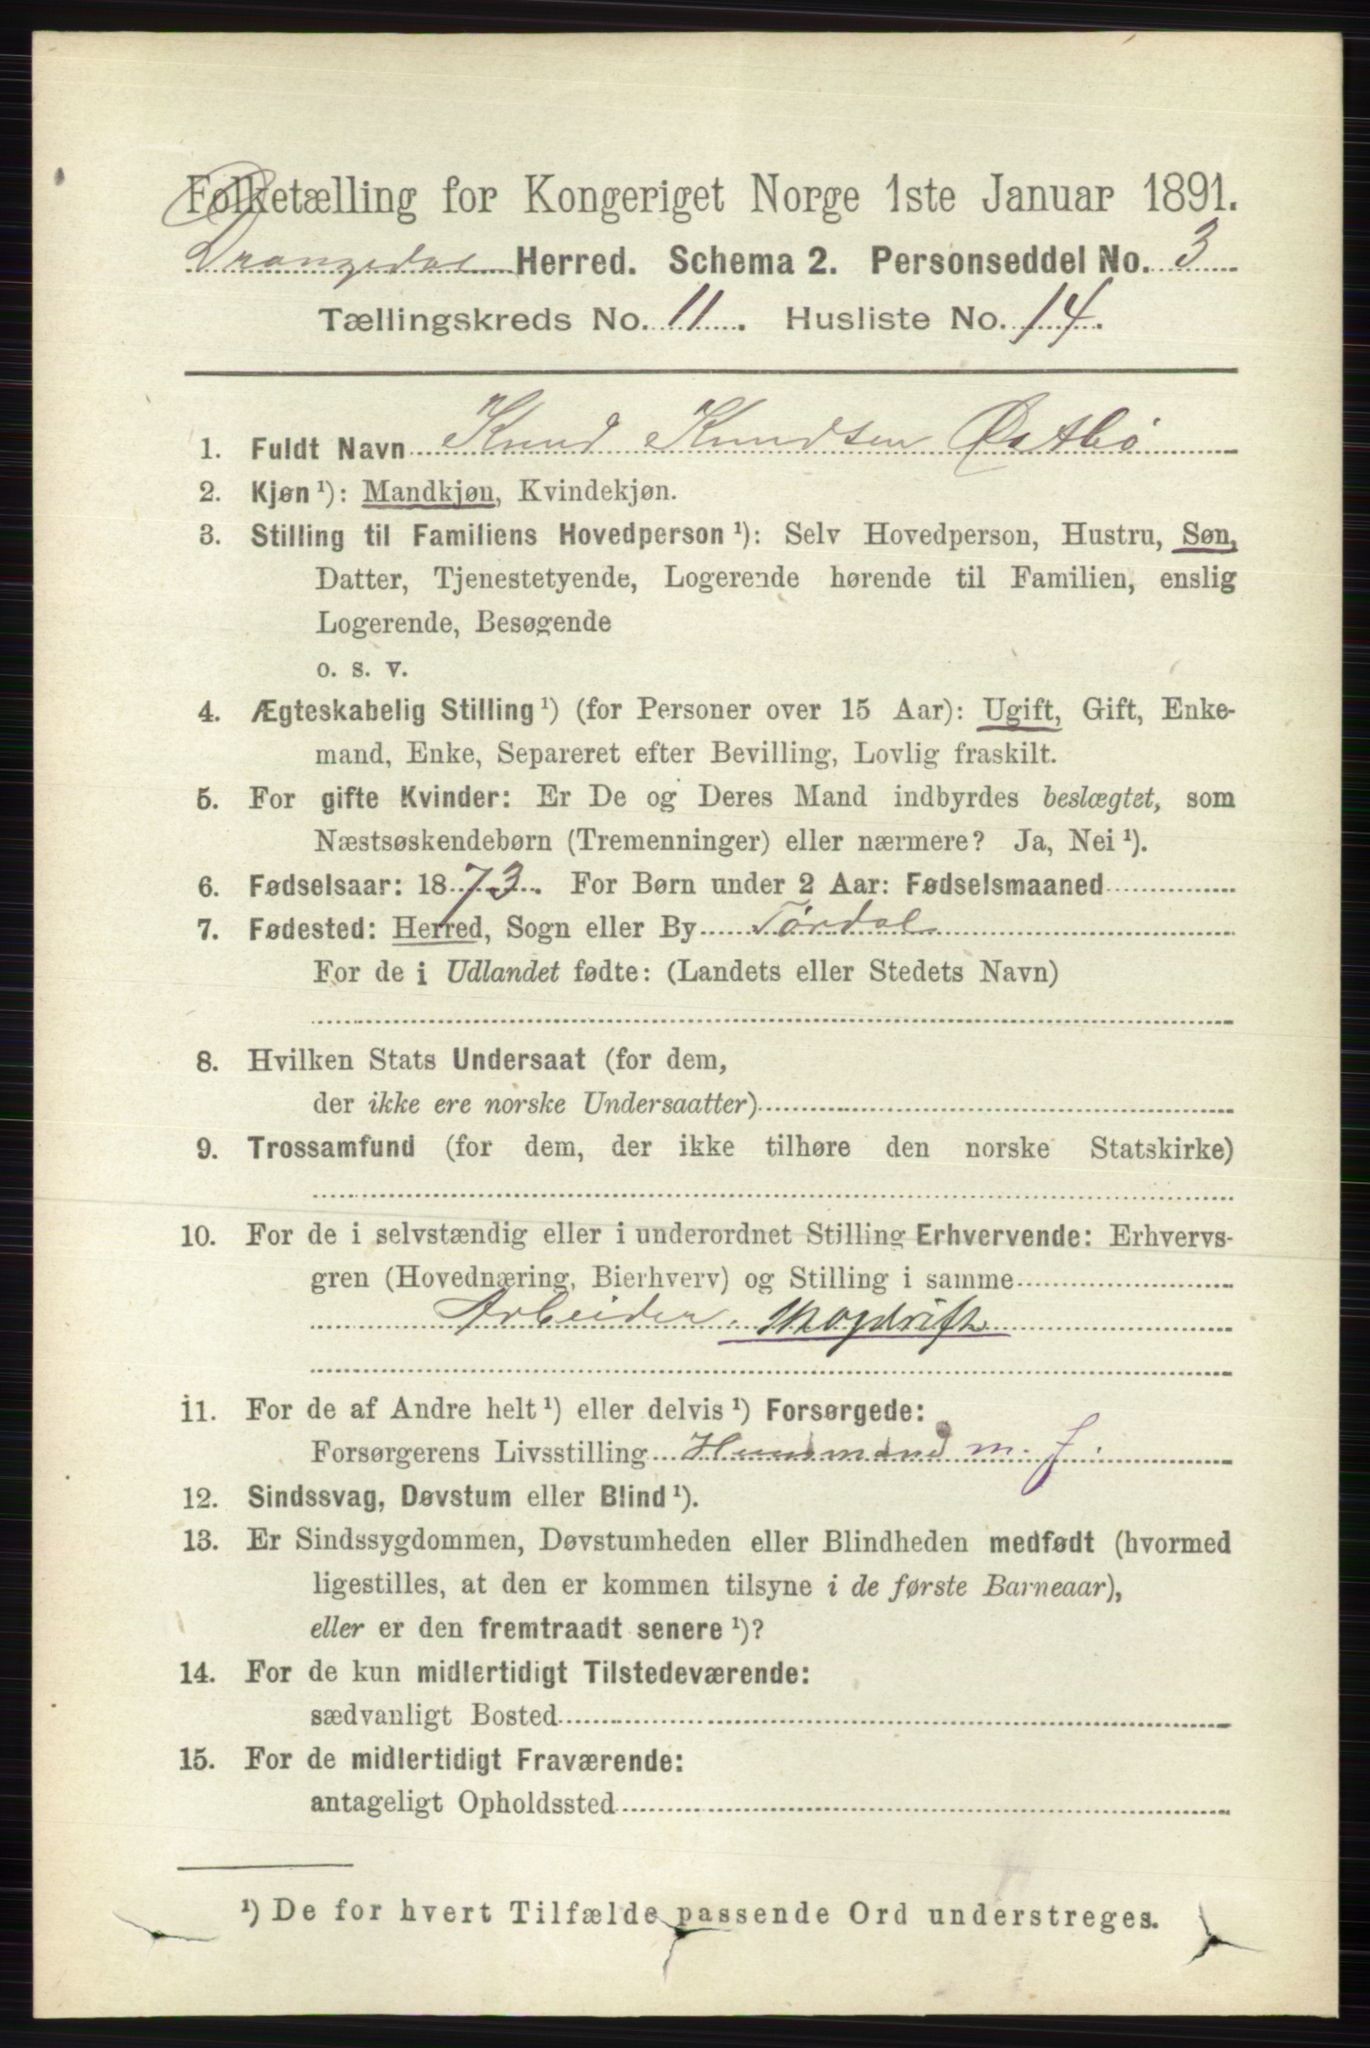 Folketælling for Kongeriget Norge 1ste Januar 1891.
Drangedal Herred. Schema 2. Personseddel No. 3
Tællingskreds No. 11. Husliste No. 14.
1. Fuldt Navn Knud Knudsen Østbö
2. Kjøn ¹): Mandkjøn, Kvindekjøn.
3. Stilling til Familiens Hovedperson ¹): Selv Hovedperson, Hustru, Søn,
Datter, Tjenestetyende, Logerende hørende til Familien, enslig
Logerende, Besøgende
o. s. v.
4. Ægteskabelig Stilling ¹) (for Personer over 15 Aar): Ugift, Gift, Enke-
mand, Enke, Separeret efter Bevilling, Lovlig fraskilt.
5. For gifte Kvinder: Er De og Deres Mand indbyrdes beslægtet, som
Næstsøskendebørn (Tremenninger) eller nærmere? Ja, Nei ¹).
6. Fødselsaar: 1873. For Børn under 2 Aar: Fødselsmaaned
7. Fødested: Herred, Sogn eller By Tördal
For de i Udlandet fødte: (Landets eller Stedets Navn)
8. Hvilken Stats Undersaat (for dem,
der ikke ere norske Undersaatter)
9. Trossamfund (for dem, der ikke tilhøre den norske Statskirke)
10. For de i selvstændig eller i underordnet Stilling Erhvervende: Erhvervs-
gren (Hovednæring, Bierhverv) og Stilling i samme
Arbeider. Skogdrift
11. For de af Andre helt ¹) eller delvis ¹) Forsørgede:
Forsørgerens Livsstilling Huusmand m. j.
12. Sindssvag, Døvstum eller Blind ¹).
13. Er Sindssygdommen, Døvstumheden eller Blindheden medfødt (hvormed
ligestilles, at den er kommen tilsyne i de første Barneaar),
eller er den fremtraadt senere ¹)?
14. For de kun midlertidigt Tilstedeværende:
sædvanligt Bosted
15. For de midlertidigt Fraværende:
antageligt Opholdssted
¹) De for hvert Tilfælde passende Ord understreges.